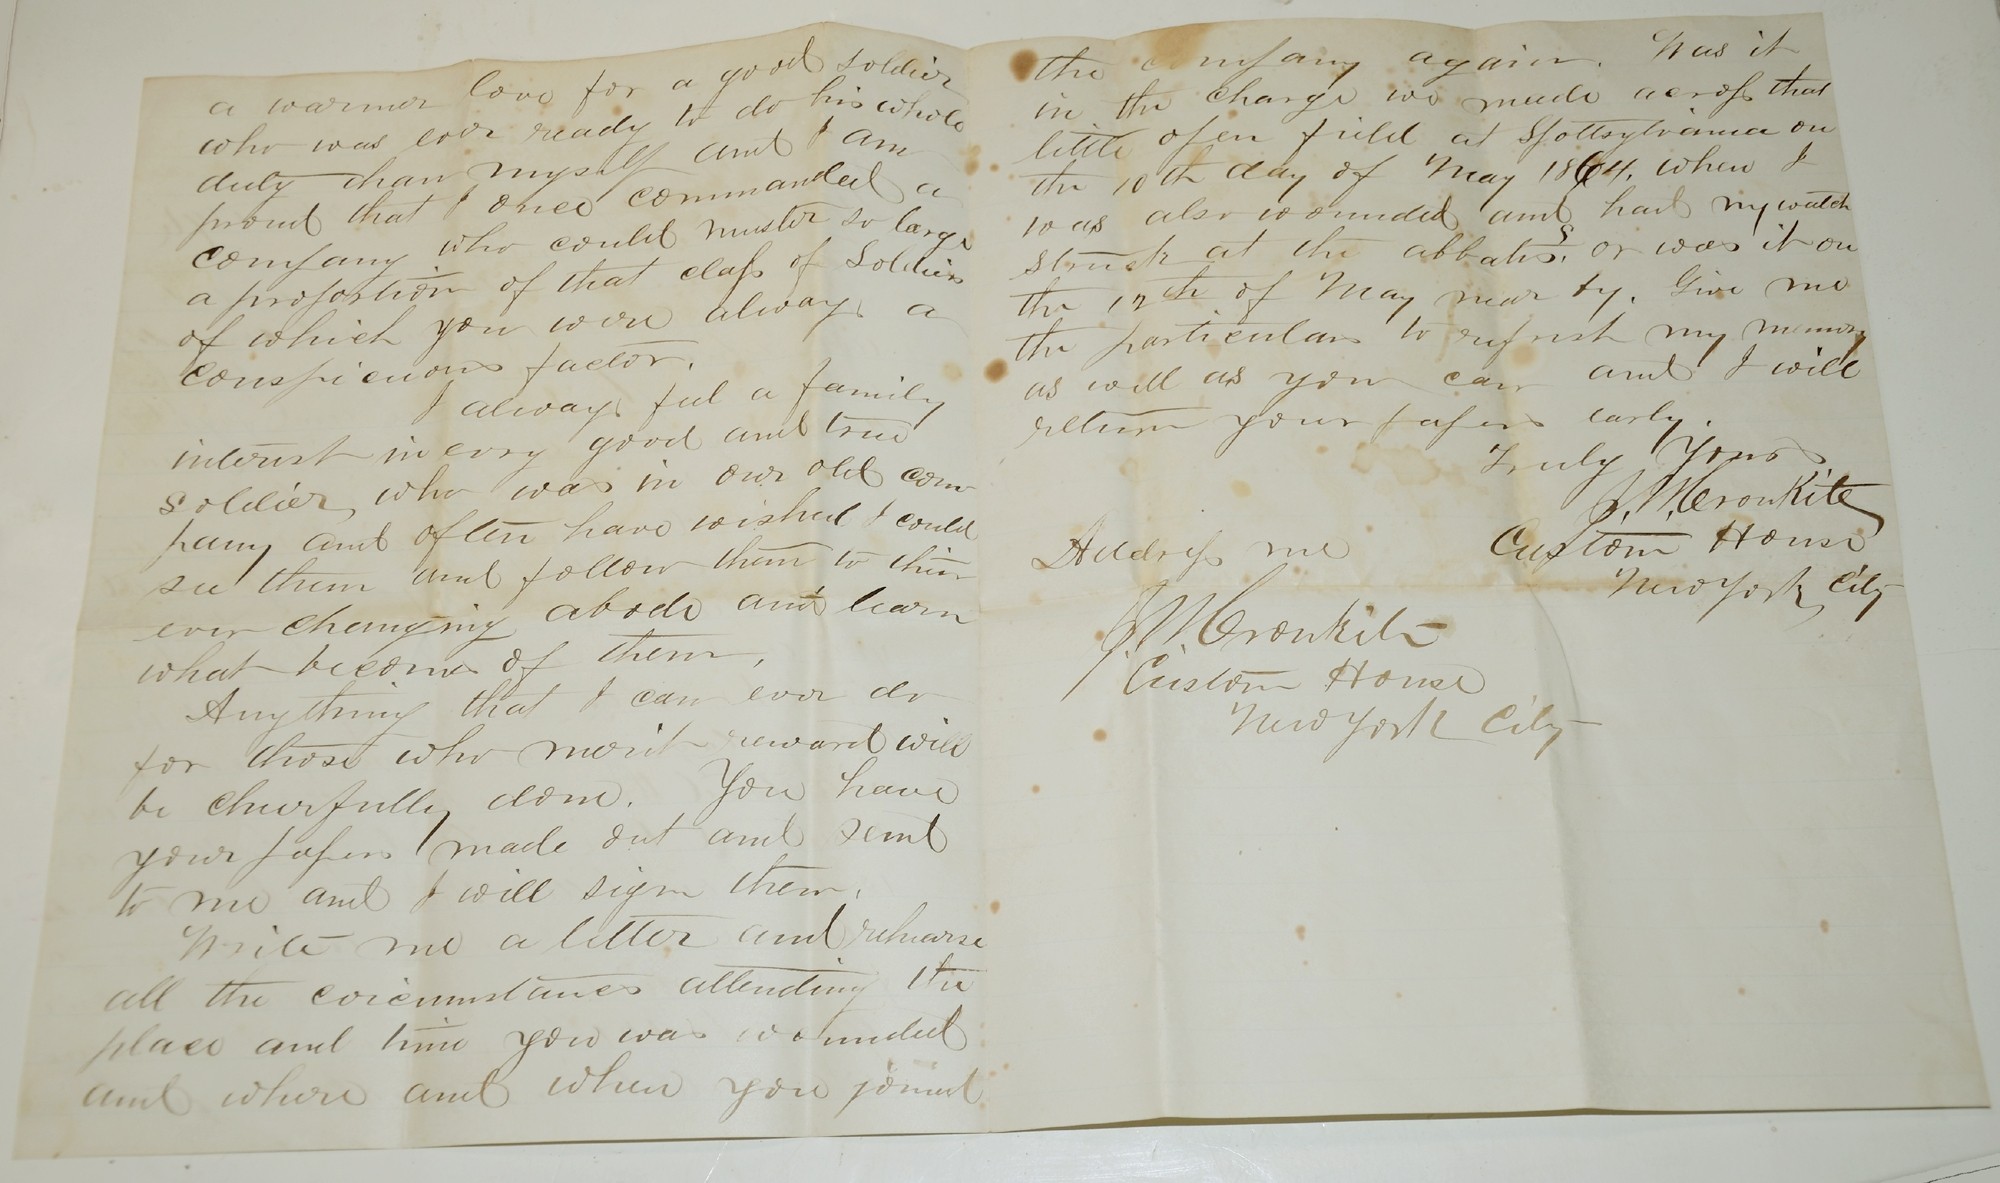 a warmer love for a good soldier
who was ever ready to do his whole
duty than myself and I am
proud that I once commanded a
company who could muster so large
a proportion of that class of Soldiers
of which you were always a
conspicuous factor.
I always feel a family
interest in every good and true
soldier who was in our old com
pany and often have wished I could
see them and follow them to their
ever changing abode and learn
what becomes of them.
Anything that I can ever do
for those who merit reward will
be cheerfully done. You have
your papers made out and send
to me and I will sign them.
Write me a letter and rehearse
all the circumstances attending the
place and time you was wounded
and where and when you joined
the company again. Was it
in the charge we made across that
little open field at Spottsylvania on
the 10th day of May 1864, when I
was also wounded and had my watch
struck at the abbatis, or was it on
the 12th of May near by. Give me
the particulars to refresh my memory
as well as you can and I will
return your papers early.
Truly Yours
J. N. Cronkite
Custom House
New York City
Address me
J. N. Cronkite
Custom House
New York City